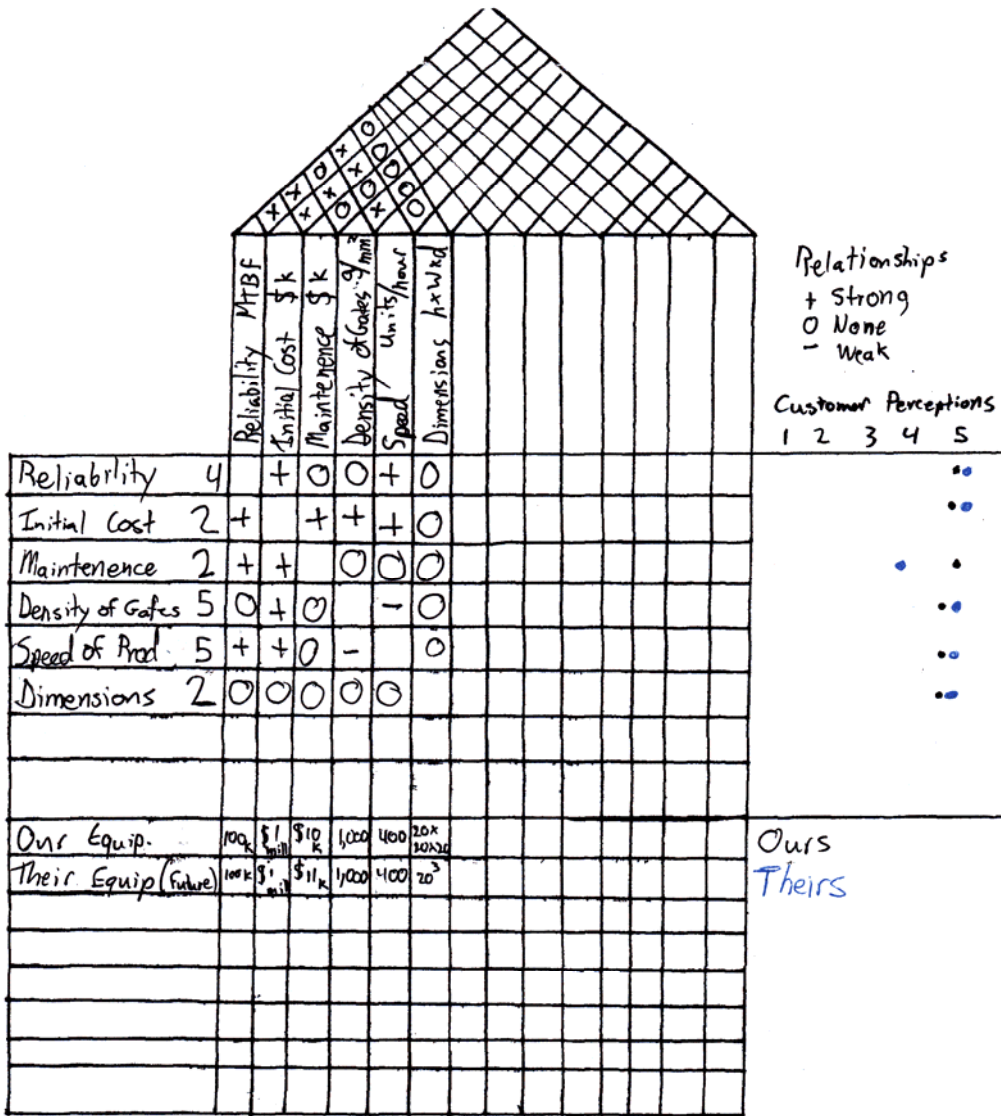 O
x O
O x O
x x O O
x x O x O
Reliability MTBF
Initial Cost $k
Maintenence $k
Density of Gates g/mm²
Speed Units/hour
Dimensions hxwxd
Relationships
+ Strong
O None
- Weak
Customer Perceptions
1 2 3 4 5
Reliability 4 + O O + O
Initial Cost 2 + + + + O
Maintenence 2 + + O O O
Density of Gates 5 O + O - O
Speed of Prod. 5 + + O - O
Dimensions 2 O O O O O
Our Equip. 100k $1 mill $10 k 1,000 400 20x 20x20
Their Equip (Future) 100k $1 mill $11k 1,000 400 20³
Ours
Theirs